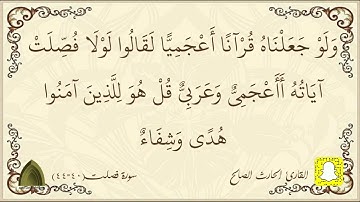 وَلَوْ جَعَلْنَاهُ قُرْآنًا أَعْجَمِيًّا لَقَالُوا لَوْلَا فُصِّلَتْ
آيَاتُهُ أَأَعْجَمِىٌّ وَعَرَبِىٌّ قُلْ هُوَ لِلَّذِينَ آمَنُوا
هُدًى وَشِفَاءٌ
القارئ الحارث الصالح
سورة فصلت (٤٠-٤٤)